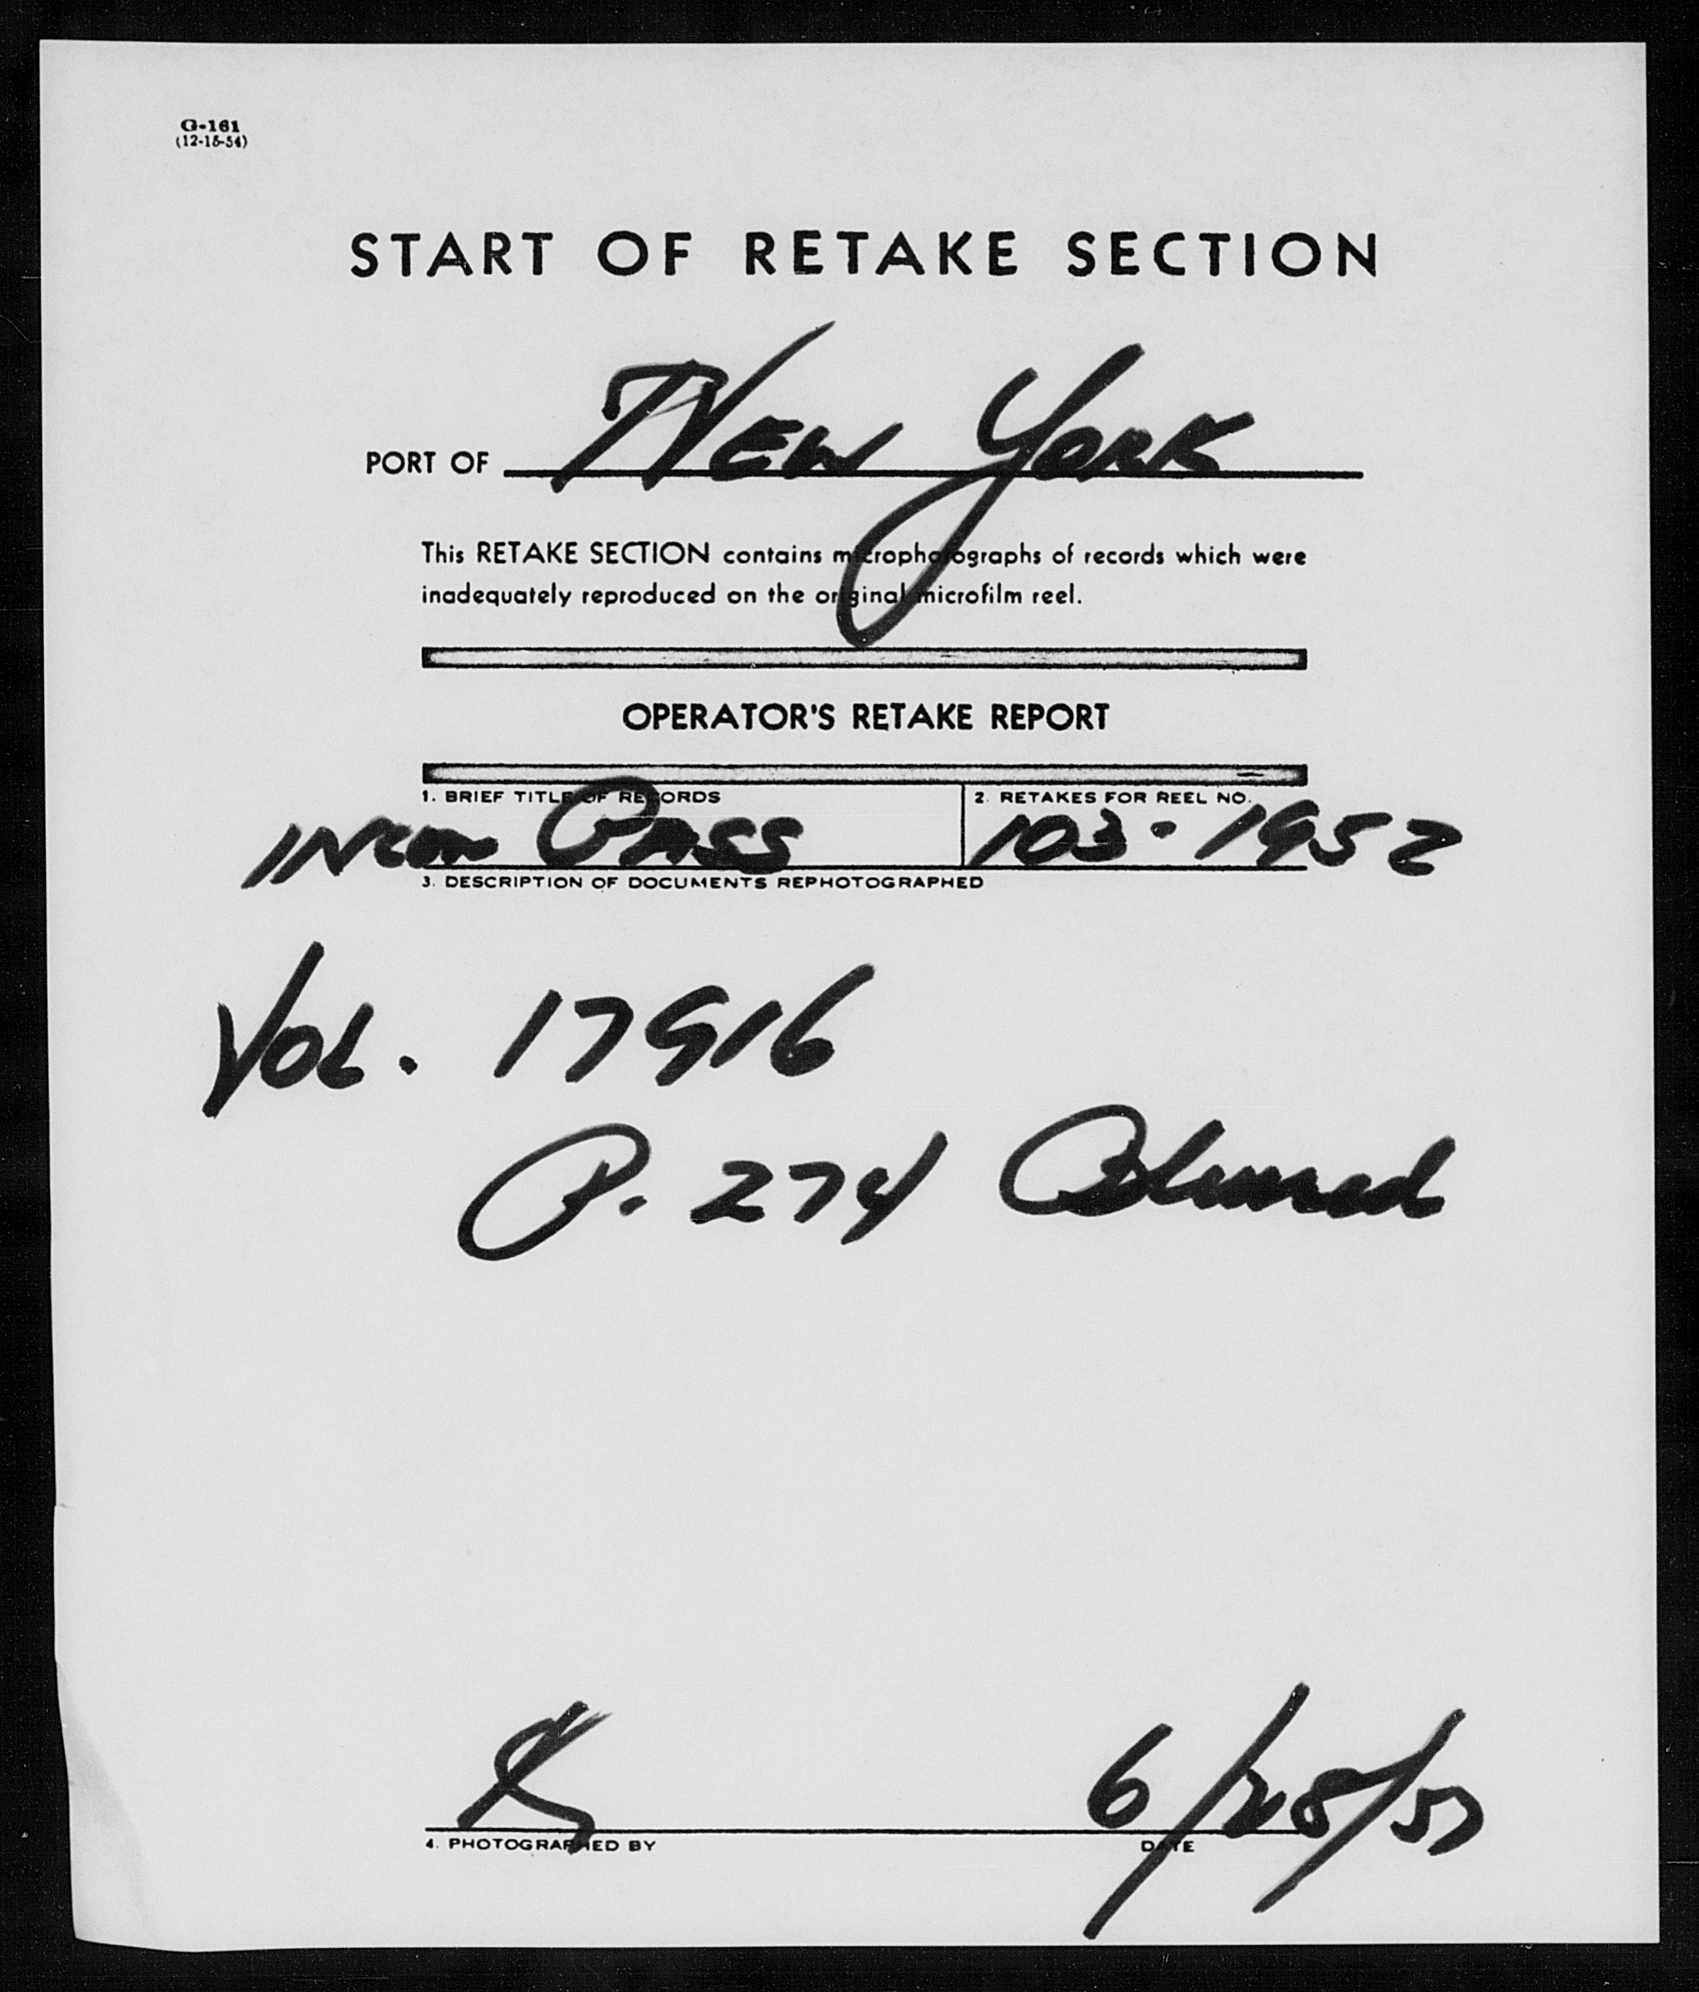 G-161
(12-15-54)
START OF RETAKE SECTION
PORT OF New York
This RETAKE SECTION contains microphotographs of records which were
inadequately reproduced on the original microfilm reel.
OPERATOR'S RETAKE REPORT
1. BRIEF TITLE OF RECORDS 2. RETAKES FOR REEL NO.
INCOM PASS 103-1952
3. DESCRIPTION OF DOCUMENTS REPHOTOGRAPHED
VOL. 17916
P. 274 Blurred
K 6/28/57
4. PHOTOGRAPHED BY DATE